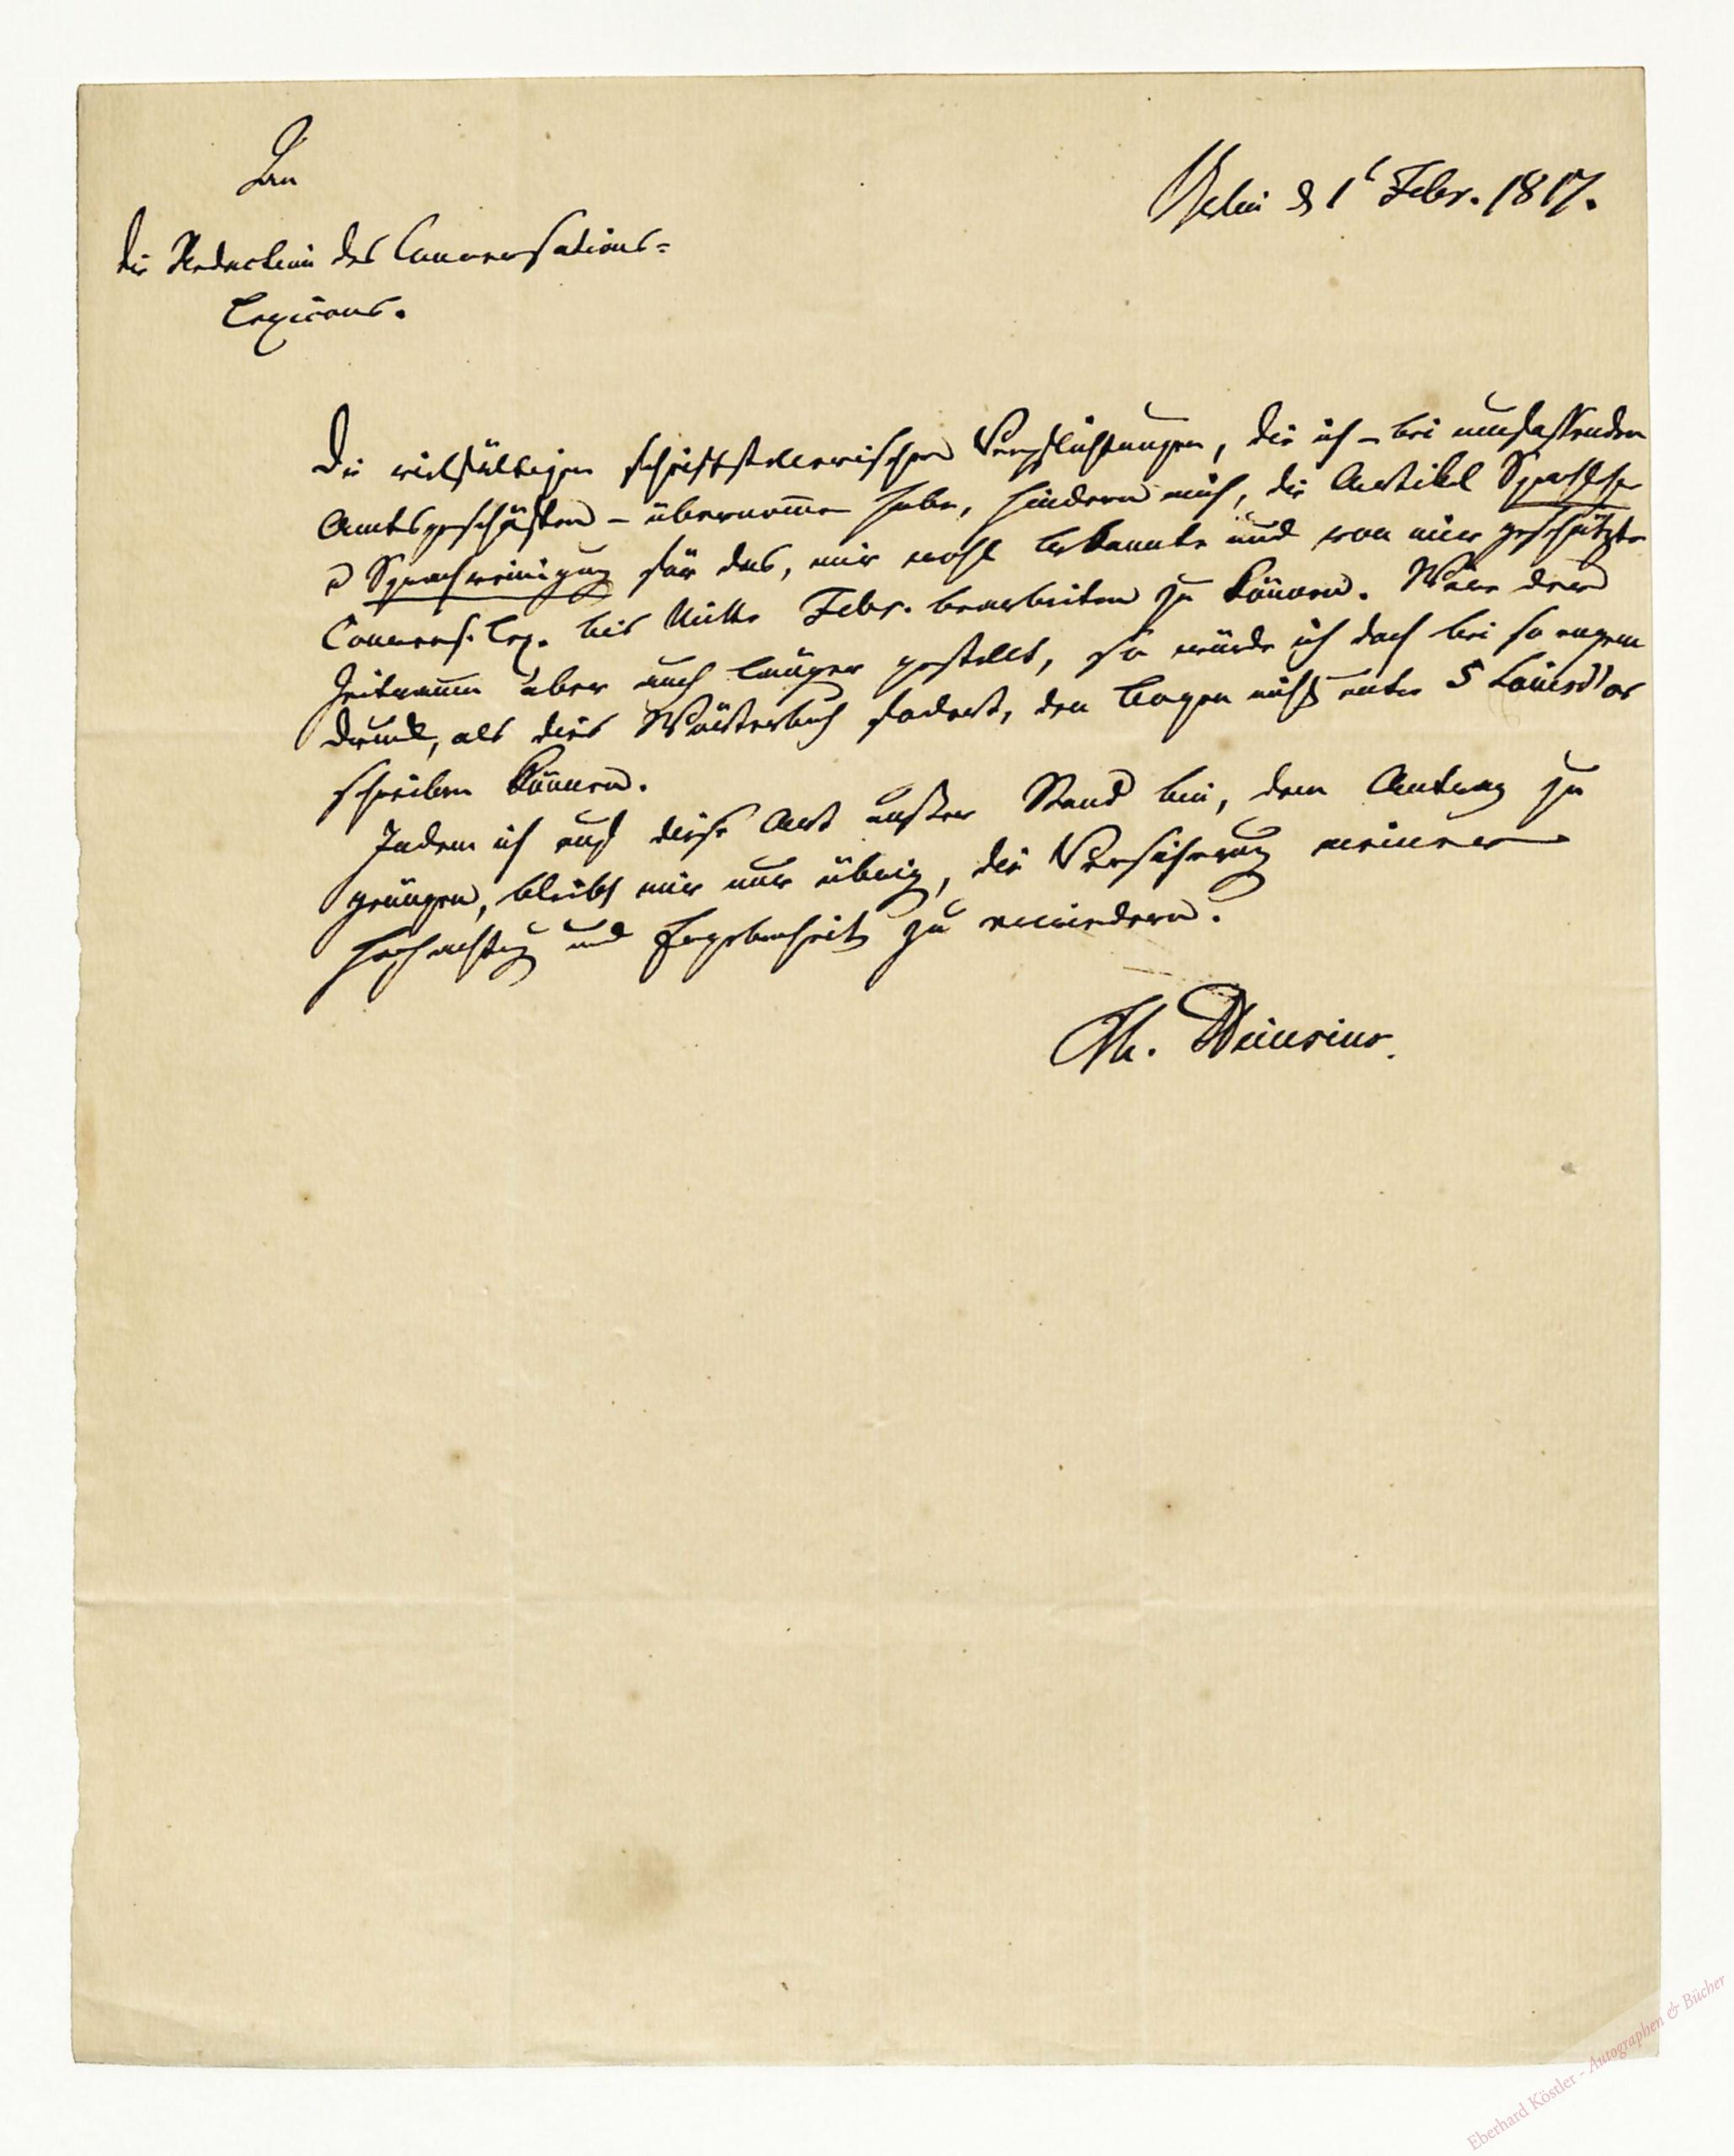 An
die Redaction des Conversations-
Lexicons.
Berlin d 1t Febr. 1817.
Die vielfältigen schriftstellerischen Verpflichtungen, die ich – bei umfassenden
Amtsgeschäften – übernomen habe, hindern mich, die Artikel Sprachlehre
u Sprachreinigung für das, mir wohl bekannte und von mir geschätzte
Convers. Lex. bis Mitte Febr. bearbeiten zu können. Wäre der
Zeitraum aber auch länger gestellt, so würde ich doch bei so engem
Druck, als dies Wörterbuch fodert, den Bogen nicht unter 5 Louisd'or
schreiben können.
Indem ich auf diese Art außer Stand bin, dem Antrag zu
genügen, bleibt mir nur übrig, die Versicherung meiner
Hochachtung und Ergebenheit zu erwiedern.
Th. Heinsius.
Eberhard Köstler - Autographen & Bücher